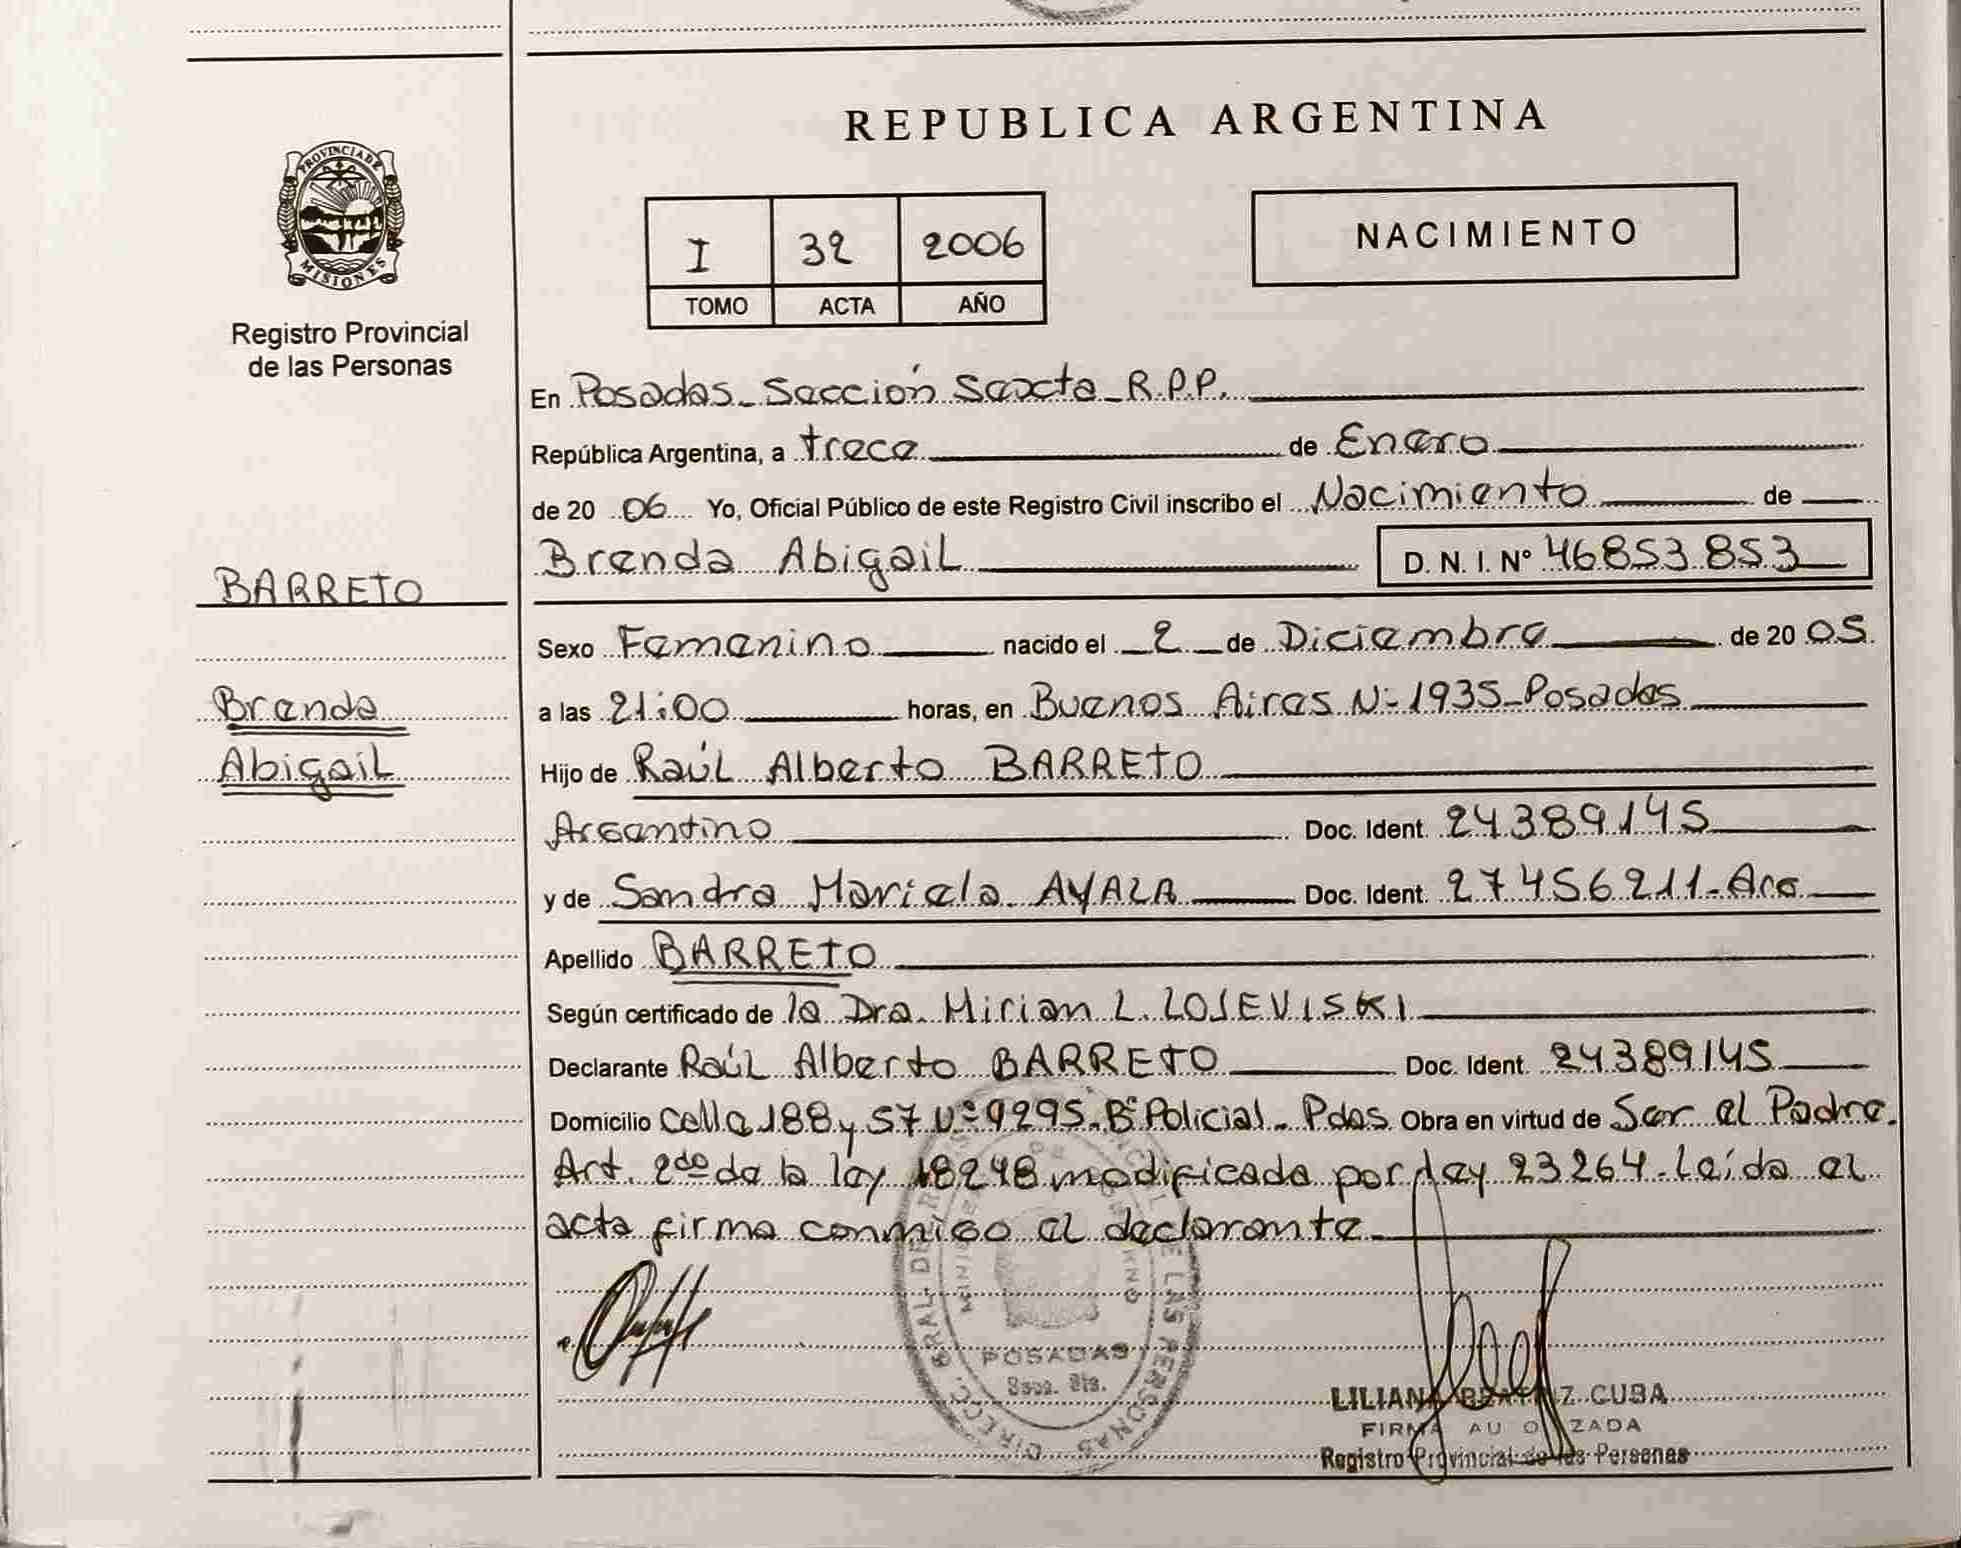 REPUBLICA ARGENTINA
PROVINCIA DE
MISIONES
Registro Provincial
de las Personas
I 32 2006
TOMO ACTA AÑO
NACIMIENTO
En Posadas - Sección Sexta - R.P.P.
República Argentina, a trece de Enero
de 20 06 Yo, Oficial Público de este Registro Civil inscribo el Nacimiento de
Brenda Abigail D. N. I. Nº 46853853
BARRETO
Brenda
Abigail
Sexo Femenino nacido el 2 de Diciembre de 20 05.
a las 21:00 horas, en Buenos Aires Nº 1935 - Posadas
Hijo de Raúl Alberto BARRETO
Argentino Doc. Ident. 24389145
y de Sandra Mariela AYALA Doc. Ident. 27456211 - Arg.
Apellido BARRETO
Según certificado de la Dra. Mirian L. LOSEVISKI
Declarante Raúl Alberto BARRETO Doc. Ident. 24389145
Domicilio Calle 188 y 57 Nº 9295 - Bº Policial - Pdas Obra en virtud de Ser el Padre.
Art. 2do de la ley 18248 modificada por ley 23264 - Leída el
acta firma conmigo el declarante
POSADAS
LILIANA BEATRIZ CUBA
FIRMA AUTORIZADA
Registro Provincial de las Personas